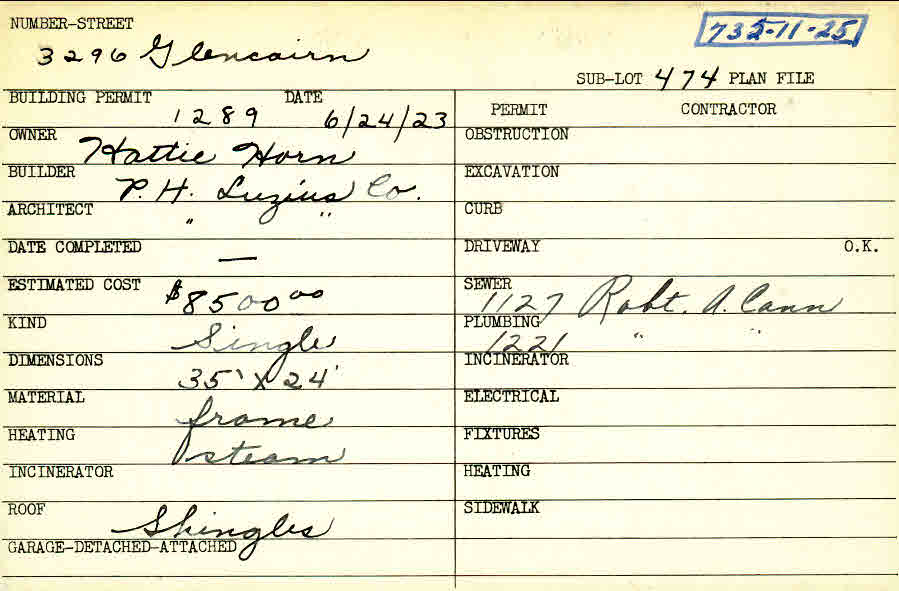 NUMBER-STREET
735-11-25
3296 Glencairn
SUB-LOT 474 PLAN FILE
BUILDING PERMIT DATE
1289 6/24/23
OWNER Hattie Horn
BUILDER P. H. Luzius Co.
ARCHITECT " "
DATE COMPLETED —
ESTIMATED COST $8500 00
KIND Single
DIMENSIONS 35' X 24'
MATERIAL frame
HEATING steam
INCINERATOR
ROOF Shingles
GARAGE-DETACHED-ATTACHED
PERMIT CONTRACTOR
OBSTRUCTION
EXCAVATION
CURB
DRIVEWAY O.K.
SEWER
1127 Robt. A. Cann
PLUMBING
1221 " "
INCINERATOR
ELECTRICAL
FIXTURES
HEATING
SIDEWALK